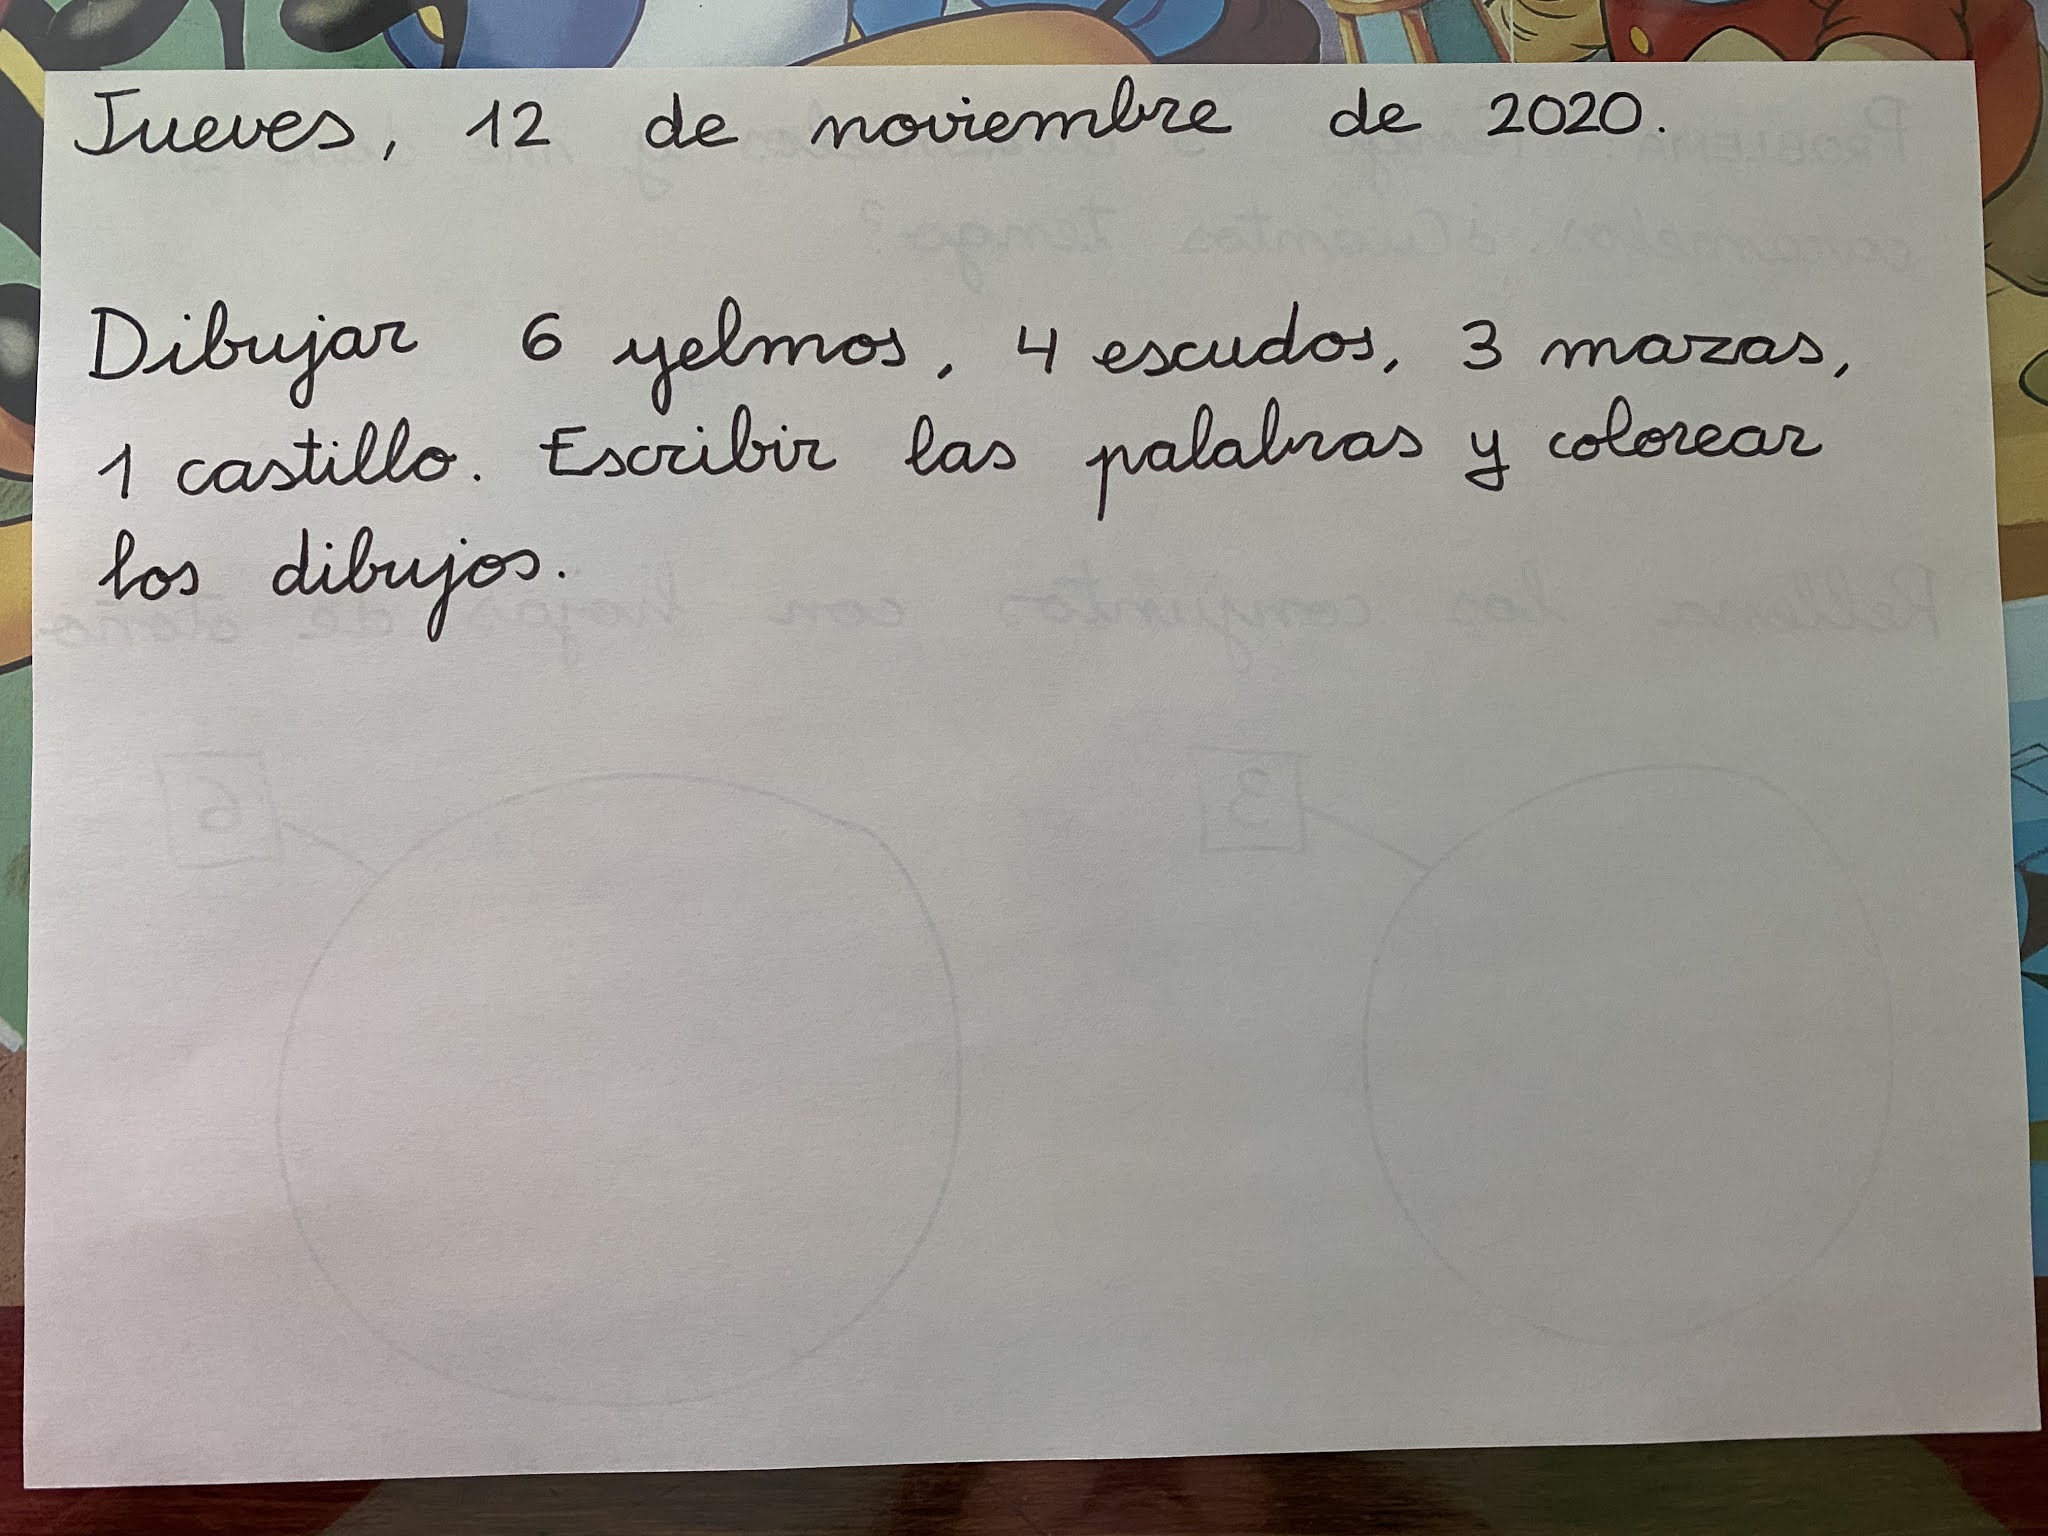 Jueves, 12 de noviembre de 2020.
Dibujar 6 yelmos, 4 escudos, 3 mazas,
1 castillo. Escribir las palabras y colorear
los dibujos.